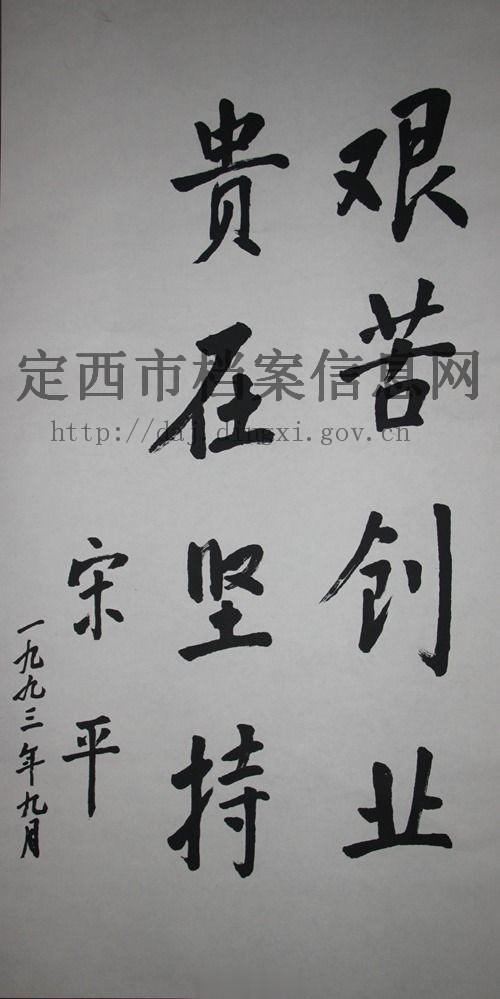 艰苦创业
贵在坚持
宋平
一九九三年九月
定西市档案信息网
http://daj.dingxi.gov.cn